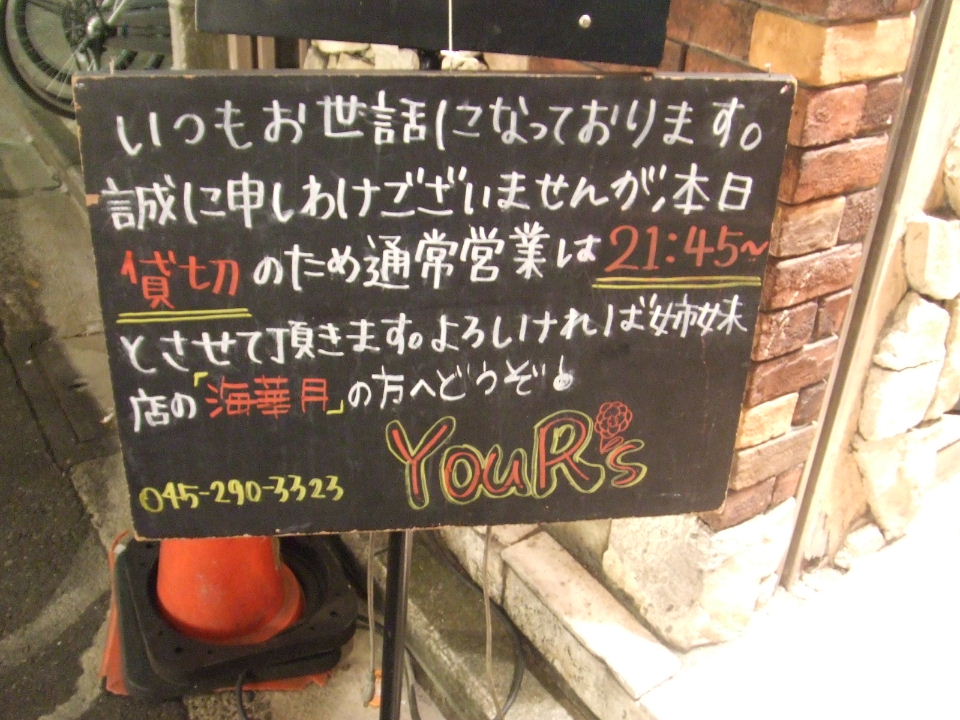 いつもお世話になっております。
誠に申しわけございませんが、本日
貸切のため通常営業は21:45~
とさせて頂きます。よろしければ姉妹
店の「海華月」の方へどうぞ!
YouR's
045-290-3323